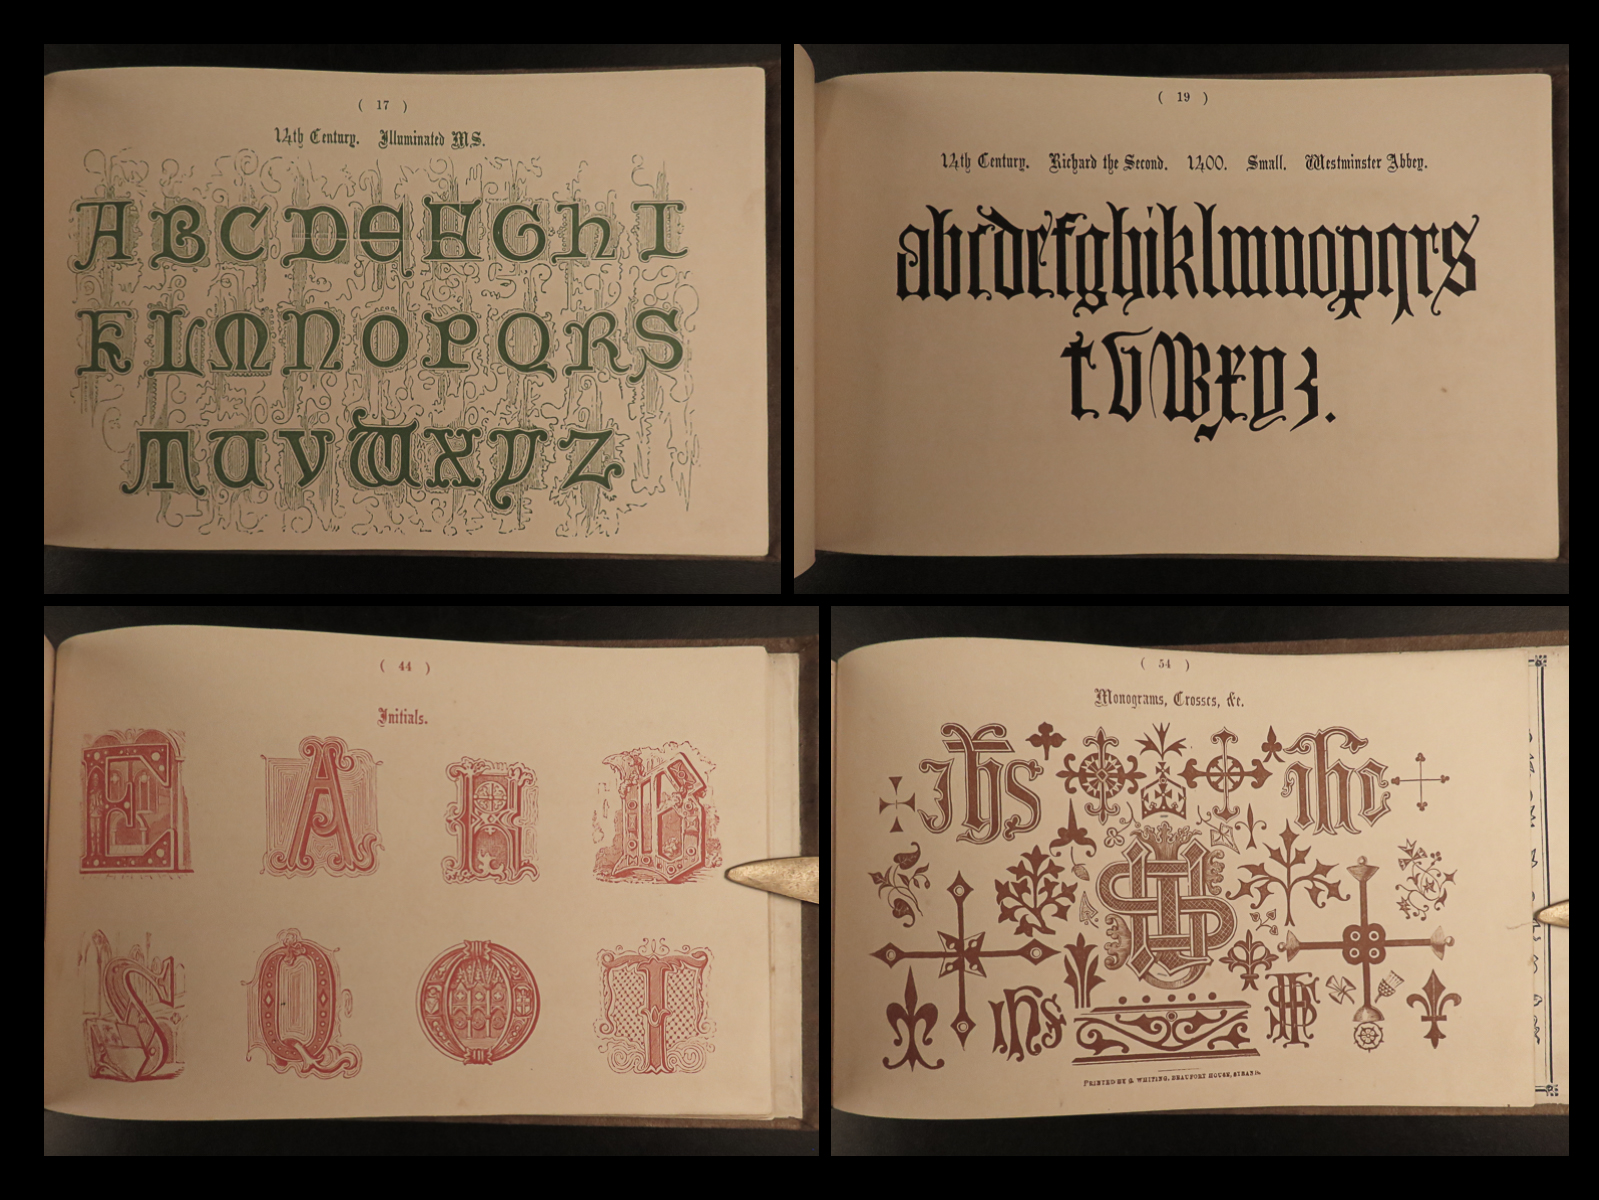 ( 17 )
14th Century. Illuminated MS.
A B C D E F G h I
K L M N O P Q R S
T U V W X Y Z
( 19 )
14th Century. Richard the Second. 1400. Small. Westminster Abbey.
a b c d e f g h i k l m n o p q r s
t v w x y z.
( 44 )
Initials.
E A K B
S Q O T
( 54 )
Monograms, Crosses, &c.
ihs ihc
IHS
ihs IHS
PRINTED BY G. WHITING, BEAUFORT HOUSE, STRAND.